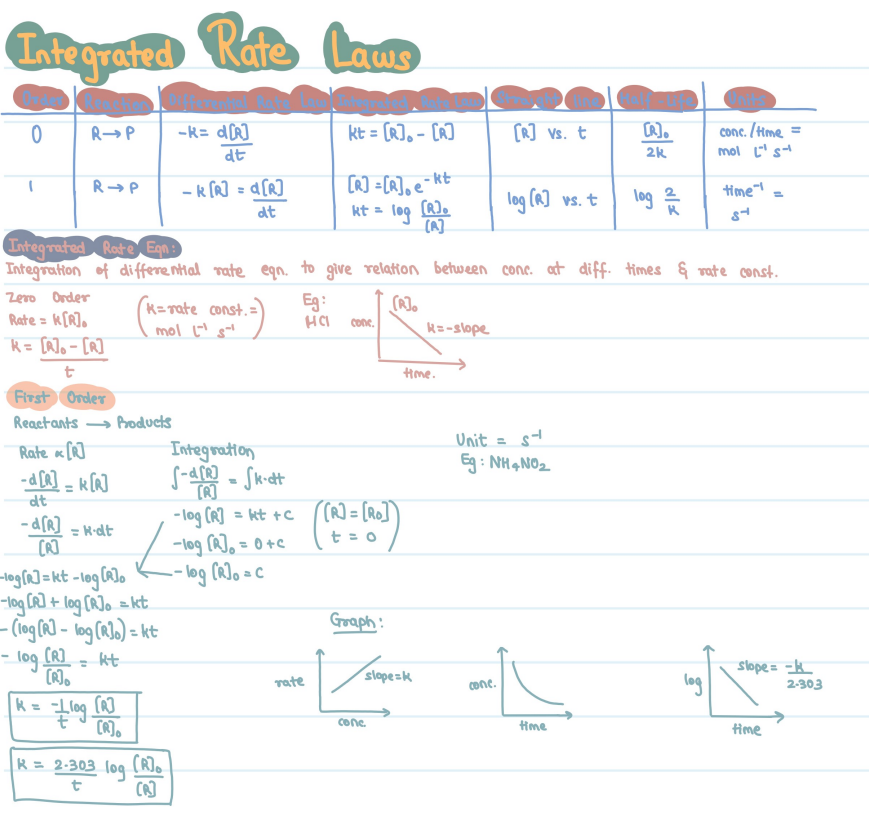 Integrated Rate Laws
Order Reaction Differential Rate Law Integrated Rate Law Straight line Half-Life Units
0 R→P -k = d[R]/dt kt = [R]₀ - [R] [R] vs. t [R]₀/2k conc./time = mol L⁻¹ s⁻¹
1 R→P -k[R] = d[R]/dt [R] = [R]₀e^-kt kt = log [R]₀/[R] log[R] vs. t log 2/k time⁻¹ = s⁻¹
Integrated Rate Eqn:
Integration of differential rate eqn. to give relation between conc. at diff. times & rate const.
Zero Order
Rate = k[R]₀
k = [R]₀ - [R]/t
(k = rate const. =
mol L⁻¹ s⁻¹)
Eg:
HCl
conc.
[R]₀
k = -slope
time.
First Order
Reactants → Products
Rate ∝ [R]
-d[R]/dt = k[R]
-d[R]/[R] = k·dt
Integration
∫-d[R]/[R] = ∫k·dt
-log[R] = kt + C
-log[R]₀ = 0 + C
-log[R]₀ = C
([R] = [R₀]
t = 0)
Unit = s⁻¹
Eg: NH4NO2
-log[R] = kt - log[R]₀
-log[R] + log[R]₀ = kt
-(log[R] - log[R]₀) = kt
-log [R]/[R]₀ = kt
k = -1/t log [R]/[R]₀
k = 2.303/t log [R]₀/[R]
Graph:
rate
slope = k
conc.
conc.
time
log
slope = -k/2.303
time